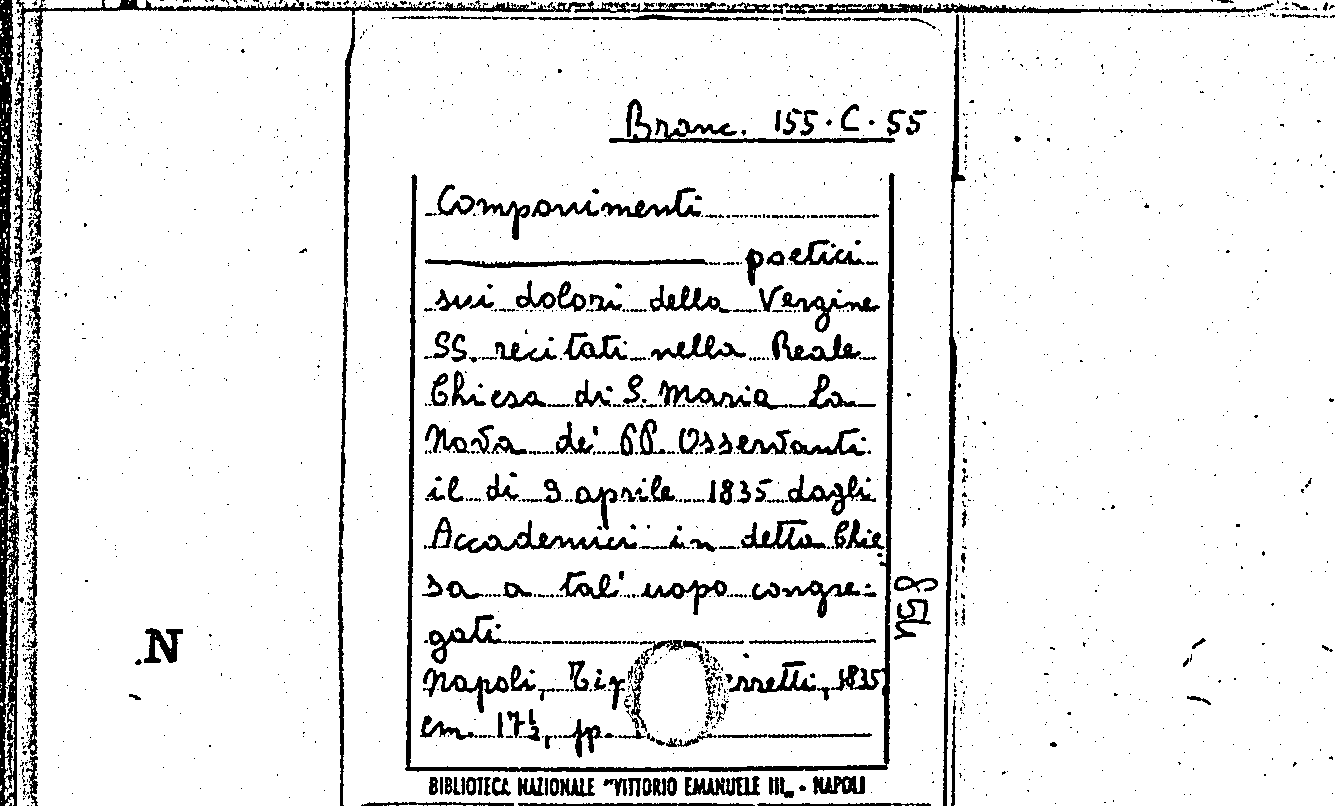 Branc. 155.C.55
Componimenti
poetici
sui dolori della Vergine
SS. recitati nella Reale
Chiesa di S. Maria La
Nova de' PP. Osservanti
il di 9 aprile 1835 dagli
Accademici in detta Chie
sa a tal' uopo congre=
gati
Napoli, 1835
cm. 17½, pp.
854
N
BIBLIOTECA NAZIONALE "VITTORIO EMANUELE III„ - NAPOLI